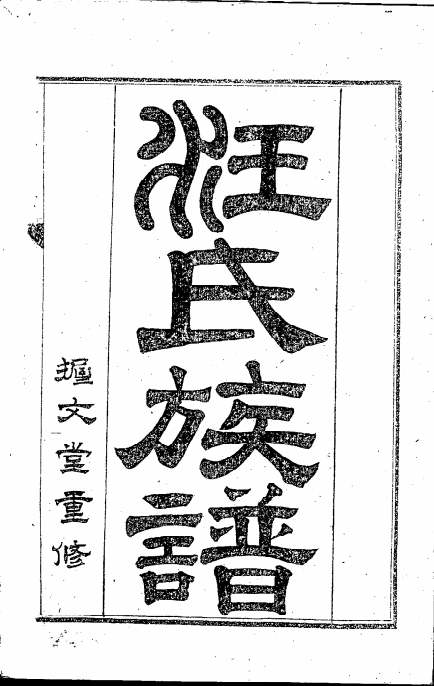 汪氏族譜
握文堂重修